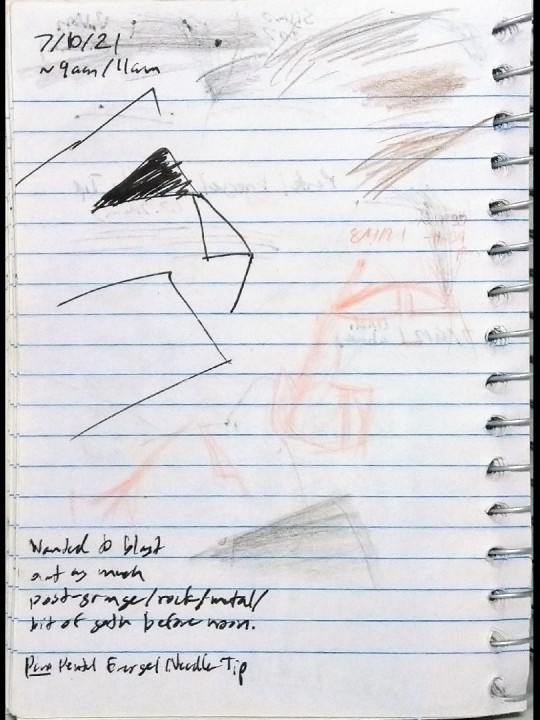 7/10/21
~9am/11am
Wanted to blast
out as much
post-grunge/rock/metal/
bit of goth before noon.
Pentel Energel Needle Tip